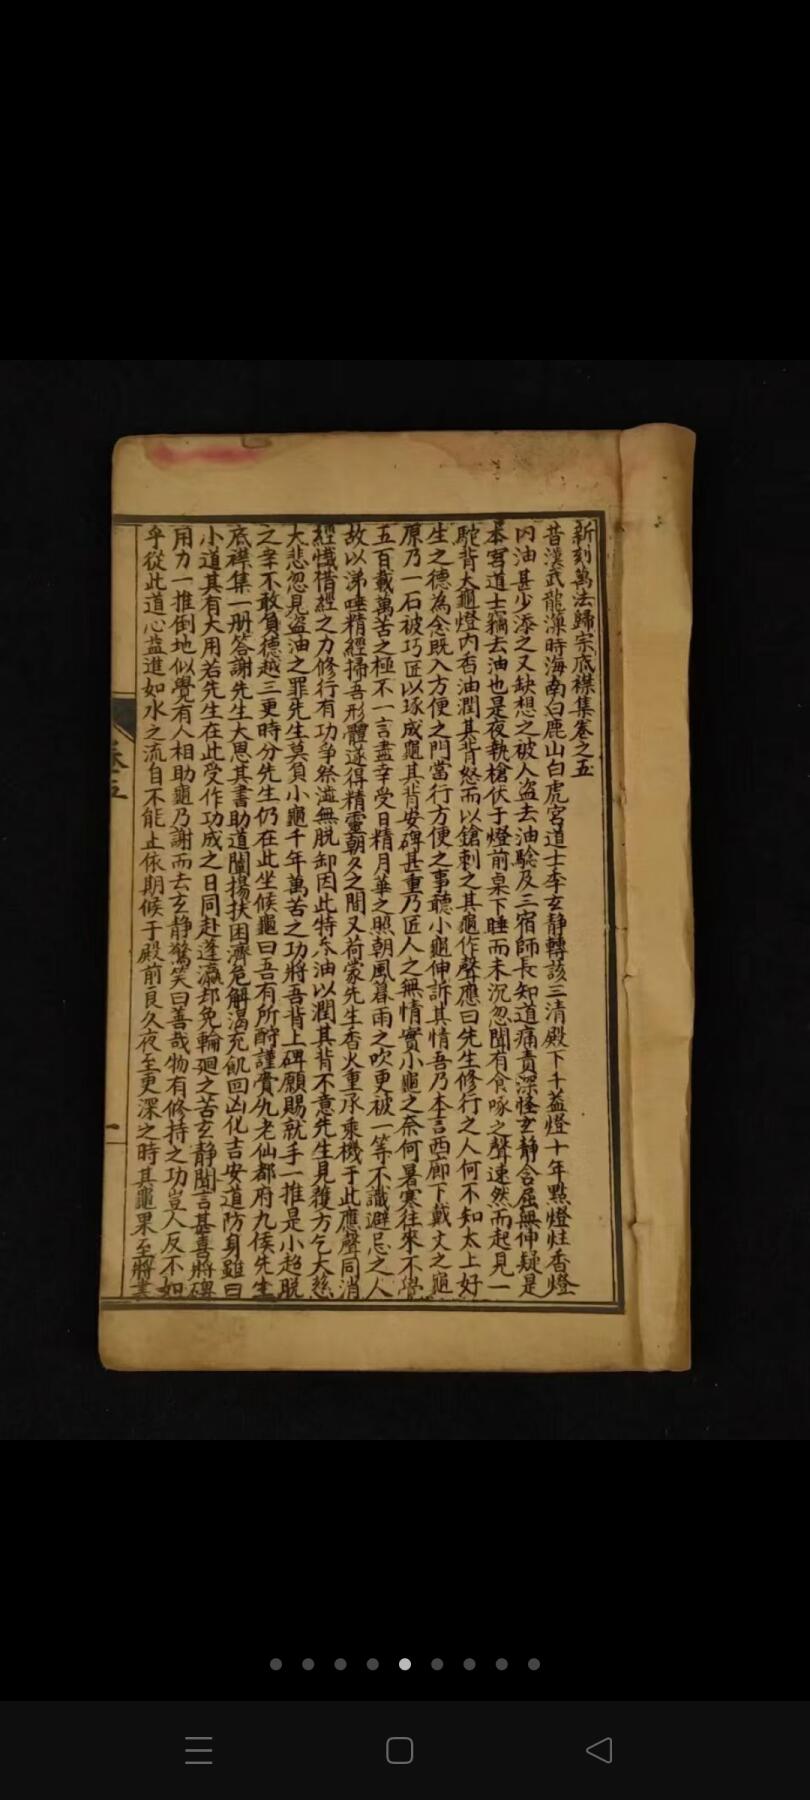 新刻萬法歸宗底襟集卷之五
昔漢武龍漢時海南白鹿山白虎宮道士李玄靜轉該三清殿下千盞燈十年點燈炷香燈
內油甚少添之又缺想之被人盜去油驗及三宿師長知道痛責深怪玄靜含屈無伸疑是
本宮道士竊去油也是夜執槍伏于燈前桌下睡而未沉忽聞有食啄之聲速然而起見一
駝背大龜燈內香油潤其背怒而以鎗刺之其龜作聲應曰先生修行之人何不知太上好
生之德為念既入方便之門當行方便之事聽小龜伸訴其情吾乃本宮西廊下戴文之龜
原乃一石被巧匠以琢成龜其背安碑甚重乃匠人之無情實小龜之奈何暑寒往來不覺
五百載萬苦之極不一言盡幸受日精月華之照朝風暮雨之吹更被一等不識避忌之人
故以涕唾精經掃吾形體遂得精靈朝夕之間又荷蒙先生香火重承乘機于此應聲同消
經懺借經之力修行有功爭奈滋無脫卸因此特夵油以潤其背不意先生見獲方乞大慈
大悲忽見盜油之罪先生莫負小龜千年萬苦之功將吾背上碑願賜就手一推是小超脫
之幸不敢負德越三更時分先生仍在此坐候龜曰吾有所酧謹賫九老仙都府九侯先生
底襟集一册答謝先生大恩其書助道闡揚扶困濟危解渴充飢回凶化吉安道防身雖曰
小道其有大用若先生在此受作功成之日同赴蓬瀛却免輪廻之苦玄靜聞言甚喜將碑
用力一推倒地似覺有人相助龜乃謝而去玄靜驚笑曰善哉物有修持之功豈人反不如
乎從此道心益進如水之流自不能止依期候于殿前良久夜至更深之時其龜果至將書
卷五
一